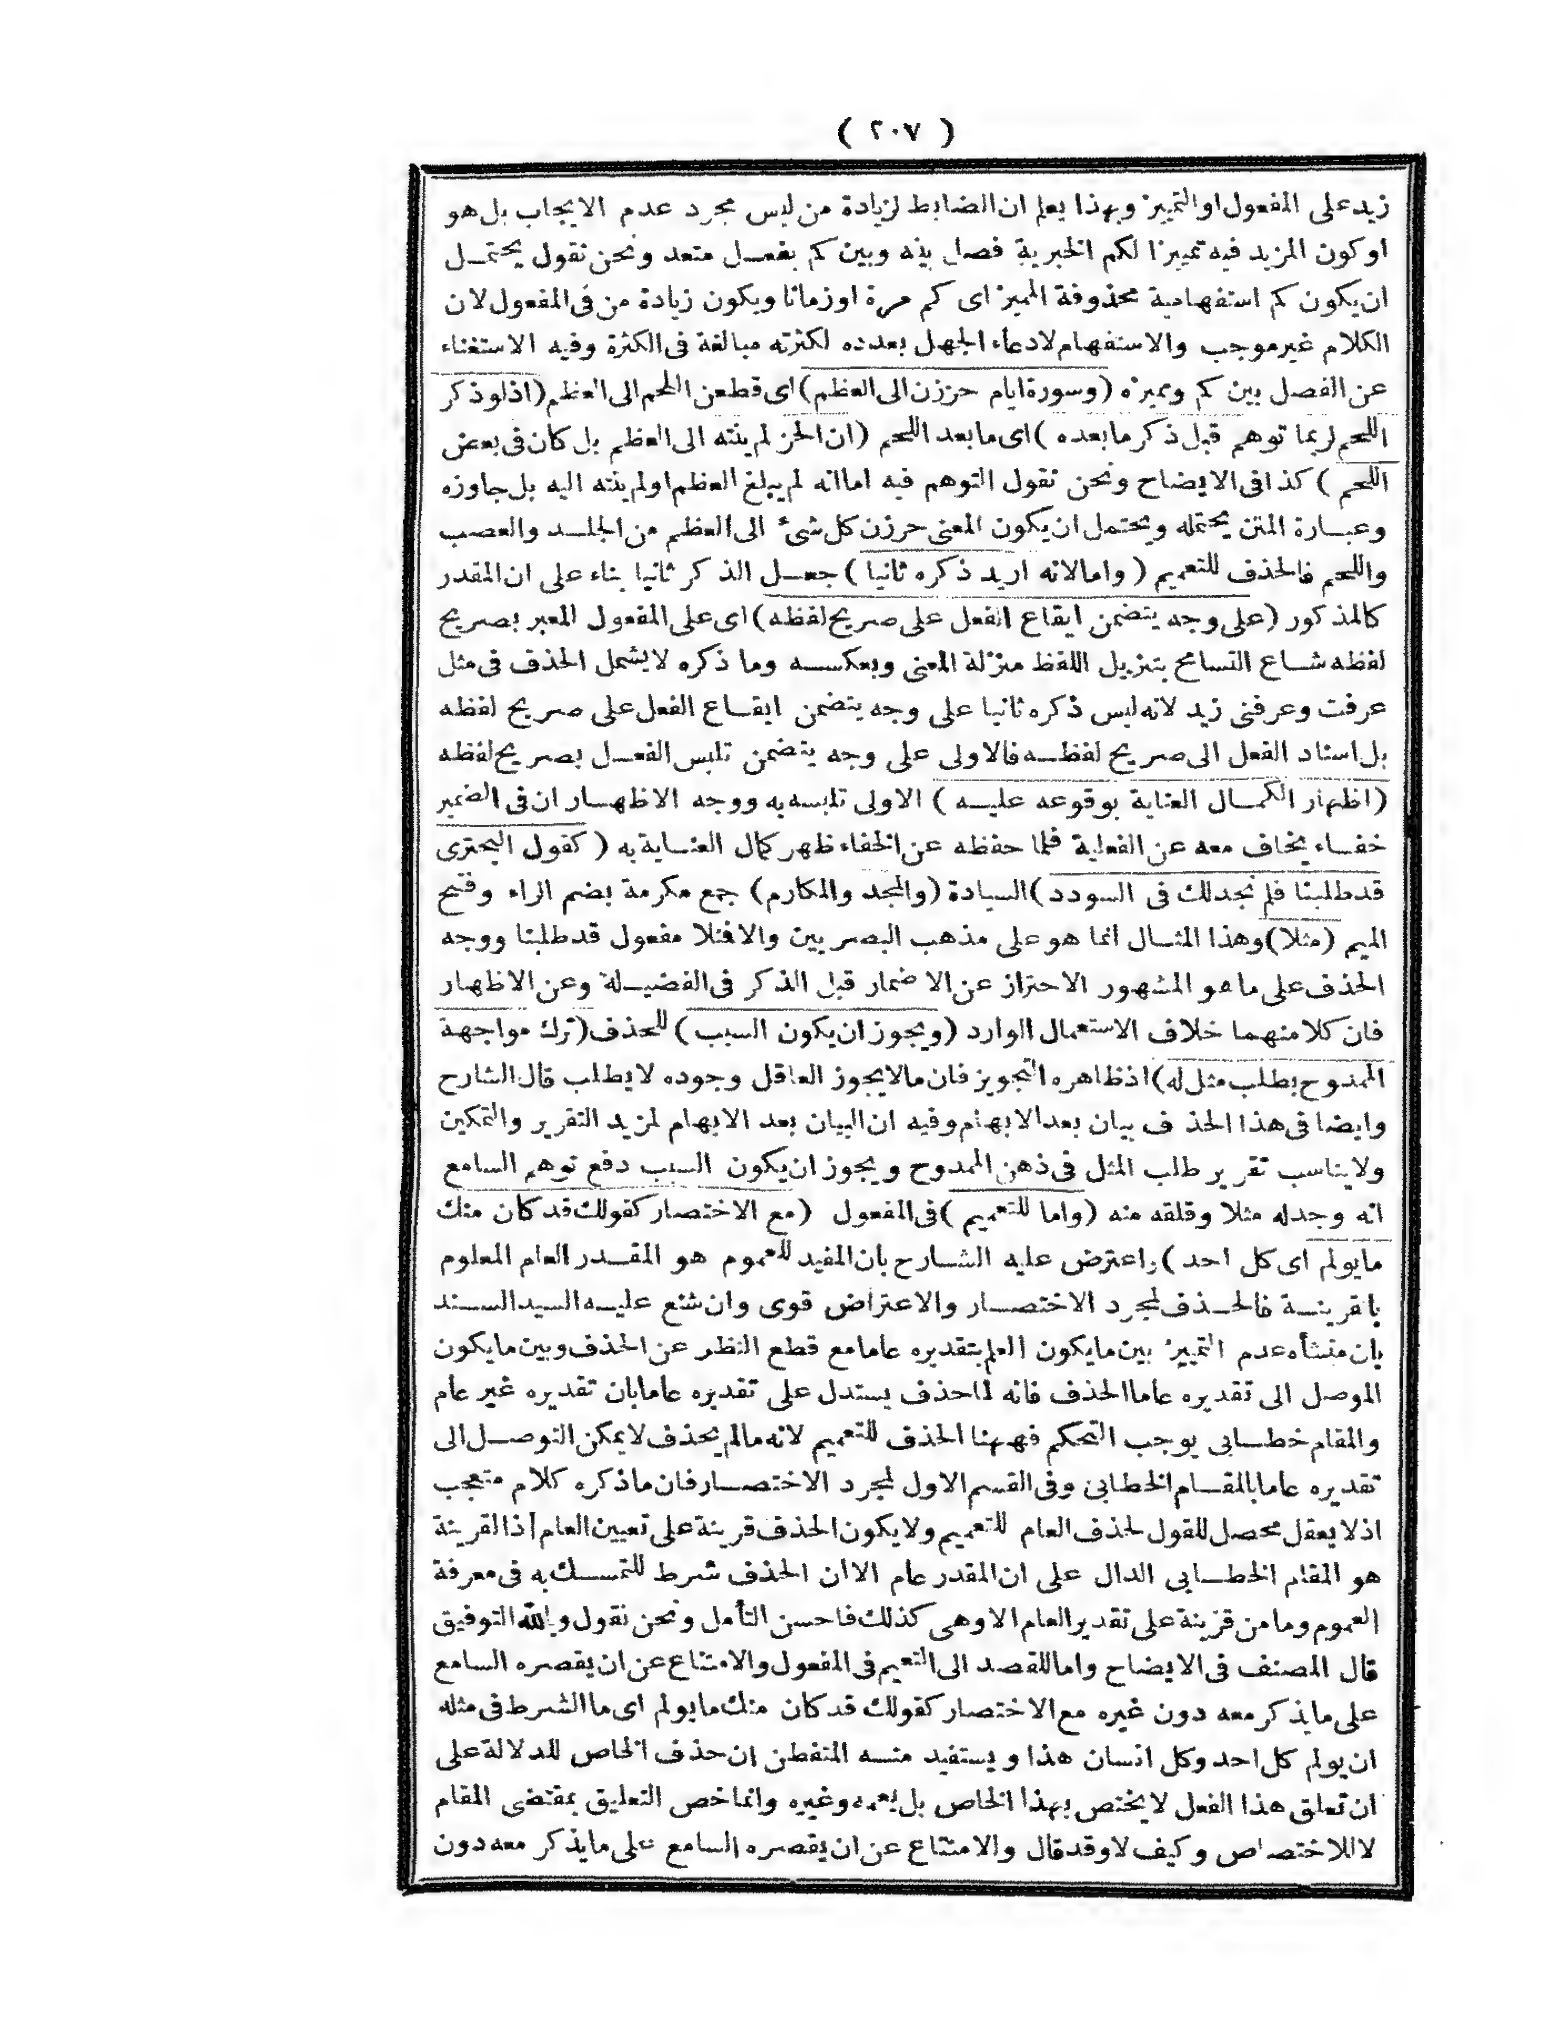 ( ٢٠٧ )
زيد على المفعول او التمييز وبهذا يعلم ان الضابط لزيادة من ليس مجرد عدم الايجاب بل هو
او كون المزيد فيه تمييزا لكم الخبرية فصل بينه وبين كم بفعل متعد ونحن نقول يحتمل
ان يكون كم استفهامية محذوفة المميز اى كم مرة او زمانا ويكون زيادة من فى المفعول لان
الكلام غير موجب والاستفهام لادعاء الجهل بعدده لكثرته مبالغة فى الكثرة وفيه الاستغناء
عن الفصل بين كم ومميزه (وسورة ايام حززن الى العظم) اى قطعن اللحم الى العظم (اذ لو ذكر
اللحم لربما توهم قبل ذكر ما بعده) اى ما بعد اللحم (ان الحز لم ينته الى العظم بل كان فى بعض
اللحم) كذا فى الايضاح ونحن نقول التوهم فيه اما انه لم يبلغ العظم او لم ينته اليه بل جاوزه
وعبارة المتن يحتمله ويحتمل ان يكون المعنى حززن كل شىء الى العظم من الجلد والعصب
واللحم فالحذف للتعميم (واما لانه اريد ذكره ثانيا) جعل الذكر ثانيا بناء على ان المقدر
كالمذكور (على وجه يتضمن ايقاع الفعل على صريح لفظه) اى على المفعول المعبر بصريح
لفظه شاع التسامح بتنزيل اللفظ منزلة المعنى وبعكسه وما ذكره لا يشمل الحذف فى مثل
عرفت وعرفنى زيد لانه ليس ذكره ثانيا على وجه يتضمن ايقاع الفعل على صريح لفظه
بل اسناد الفعل الى صريح لفظه فالاولى على وجه يتضمن تلبس الفعل بصريح لفظه
(اظهارا لكمال العناية بوقوعه عليه) الاولى تلبسه به ووجه الاظهار ان فى الضمير
خفاء يخاف معه عن الفعلية فلما حفظه عن الخفاء ظهر كمال العناية به (كقول البحترى
قد طلبنا فلم نجد لك فى السودد) السيادة (والمجد والمكارم) جمع مكرمة بضم الراء وفتح
الميم (مثلا) وهذا المثال انما هو على مذهب البصريين والا فمثلا مفعول قد طلبنا ووجه
الحذف على ما هو المشهور الاحتراز عن الاضمار قبل الذكر فى الفضيلة وعن الاظهار
فان كلا منهما خلاف الاستعمال الوارد (ويجوز ان يكون السبب) للحذف (ترك مواجهة
الممدوح بطلب مثل له) اذ ظاهره التجويز فان ما لا يجوز العاقل وجوده لا يطلب قال الشارح
وايضا فى هذا الحذف بيان بعد الابهام وفيه ان البيان بعد الابهام لمزيد التقرير والتمكين
ولا يناسب تقرير طلب المثل فى ذهن الممدوح ويجوز ان يكون السبب دفع توهم السامع
انه وجد له مثلا وقلقه منه (واما للتعميم) فى المفعول (مع الاختصار كقولك قد كان منك
ما يولم اى كل احد) واعترض عليه الشارح بان المفيد للعموم هو المقدر العام المعلوم
بالقرينة فالحذف لمجرد الاختصار والاعتراض قوى وان شنع عليه السيد السند
بان منشأه عدم التمييز بين ما يكون العلم بتقديره عاما مع قطع النظر عن الحذف وبين ما يكون
الموصل الى تقديره عاما الحذف فانه لما حذف يستدل على تقديره عاما بان تقديره غير عام
والمقام خطابى يوجب التحكم فههنا الحذف للتعميم لانه ما لم يحذف لا يمكن التوصل الى
تقديره عاما بالمقام الخطابى وفى القسم الاول لمجرد الاختصار فان ما ذكره كلام متعجب
اذ لا يعقل محصل للقول لحذف العام للتعميم ولا يكون الحذف قرينة على تعيين العام اذ القرينة
هو المقام الخطابى الدال على ان المقدر عام الا ان الحذف شرط للتمسك به فى معرفة
العموم وما من قرينة على تقدير العام الا وهى كذلك فاحسن التأمل ونحن نقول وبالله التوفيق
قال المصنف فى الايضاح واما للقصد الى التعميم فى المفعول والامتناع عن ان يقصره السامع
على ما يذكر معه دون غيره مع الاختصار كقولك قد كان منك ما يولم اى ما الشرط فى مثله
ان يولم كل احد وكل انسان هذا ويستفيد منه المتفطن ان حذف الخاص للدلالة على
ان تعلق هذا الفعل لا يختص بهذا الخاص بل يعمه وغيره وانما خص التعليق بمقتضى المقام
لا للاختصاص وكيف لا وقد قال والامتناع عن ان يقصره السامع على ما يذكر معه دون